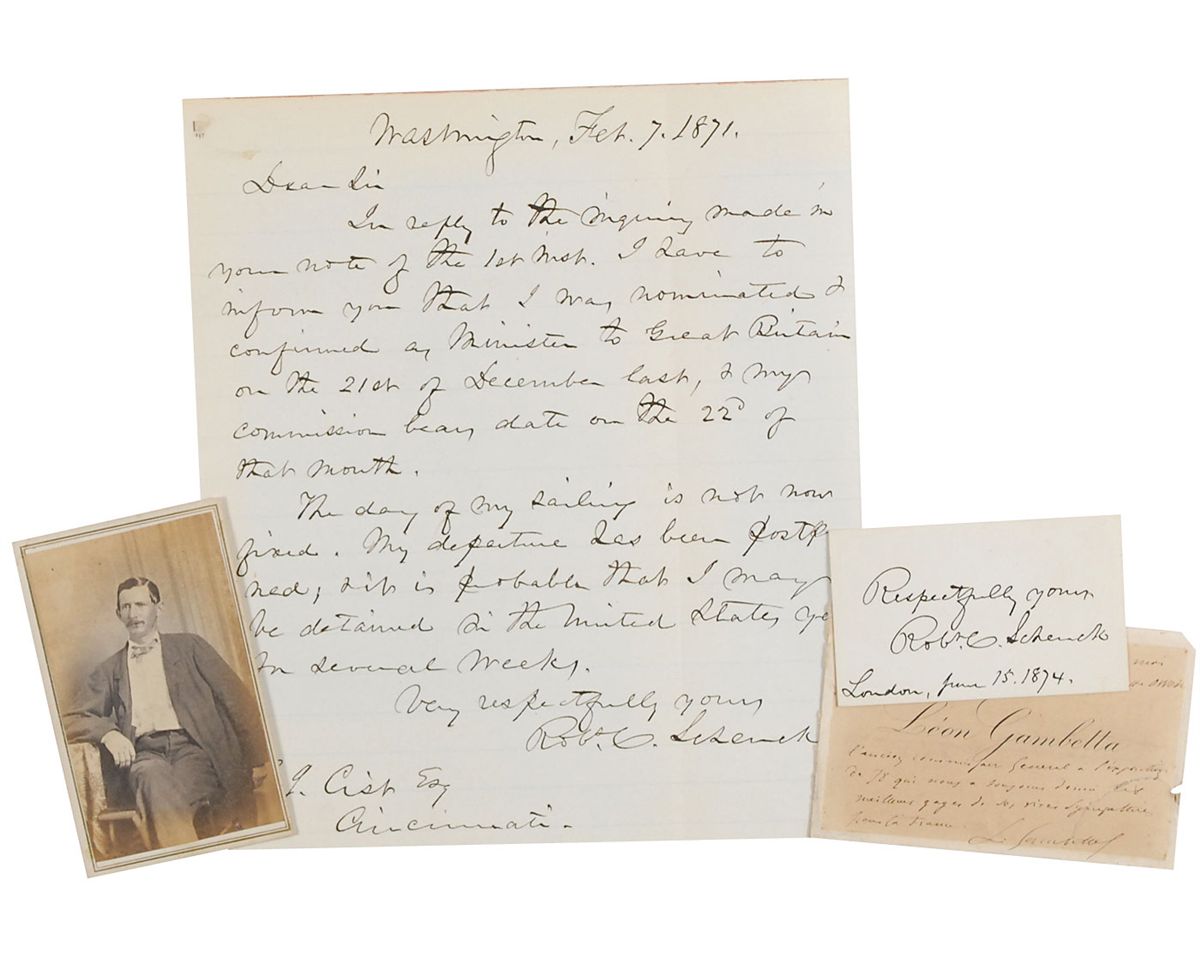 Washington, Feb. 7. 1871.
Dear Sir
In reply to the inquiry made in
your note of the 1st inst. I have to
inform you that I was nominated &
confirmed as Minister to Great Britain
on the 21st of December last, & my
commission bears date on the 22d of
that month.
The day of my sailing is not now
fixed. My departure has been postpo
ned; & it is probable that I may
be detained in the United States ye
for several weeks.
Very respectfully yours
Robt. C. Schenck
J. Cist Esq
Cincinnati.
Respectfully yours
Robt. C. Schenck
London, June 15. 1874.
moi
Léon Gambetta
l'ancien commissaire général à l'exposition
de 78 qui nous a toujours donné les
meilleurs gages de ses vives sympathies
pour la France
L. Gambetta